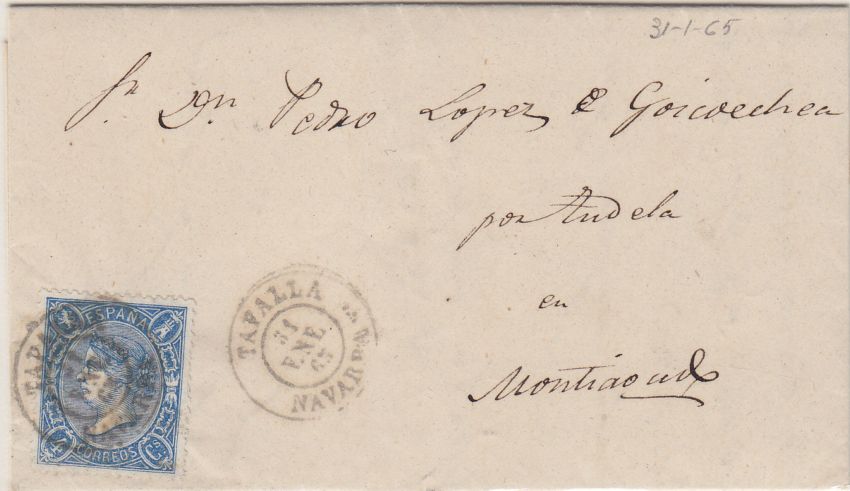 31-1-65
Sr. Dn. Pedro Lopez é Goicoechea
por Tudela
en
TAFALLA
31
ENE
65
NAVARRA
ESPAÑA
CORREOS
4 Cs